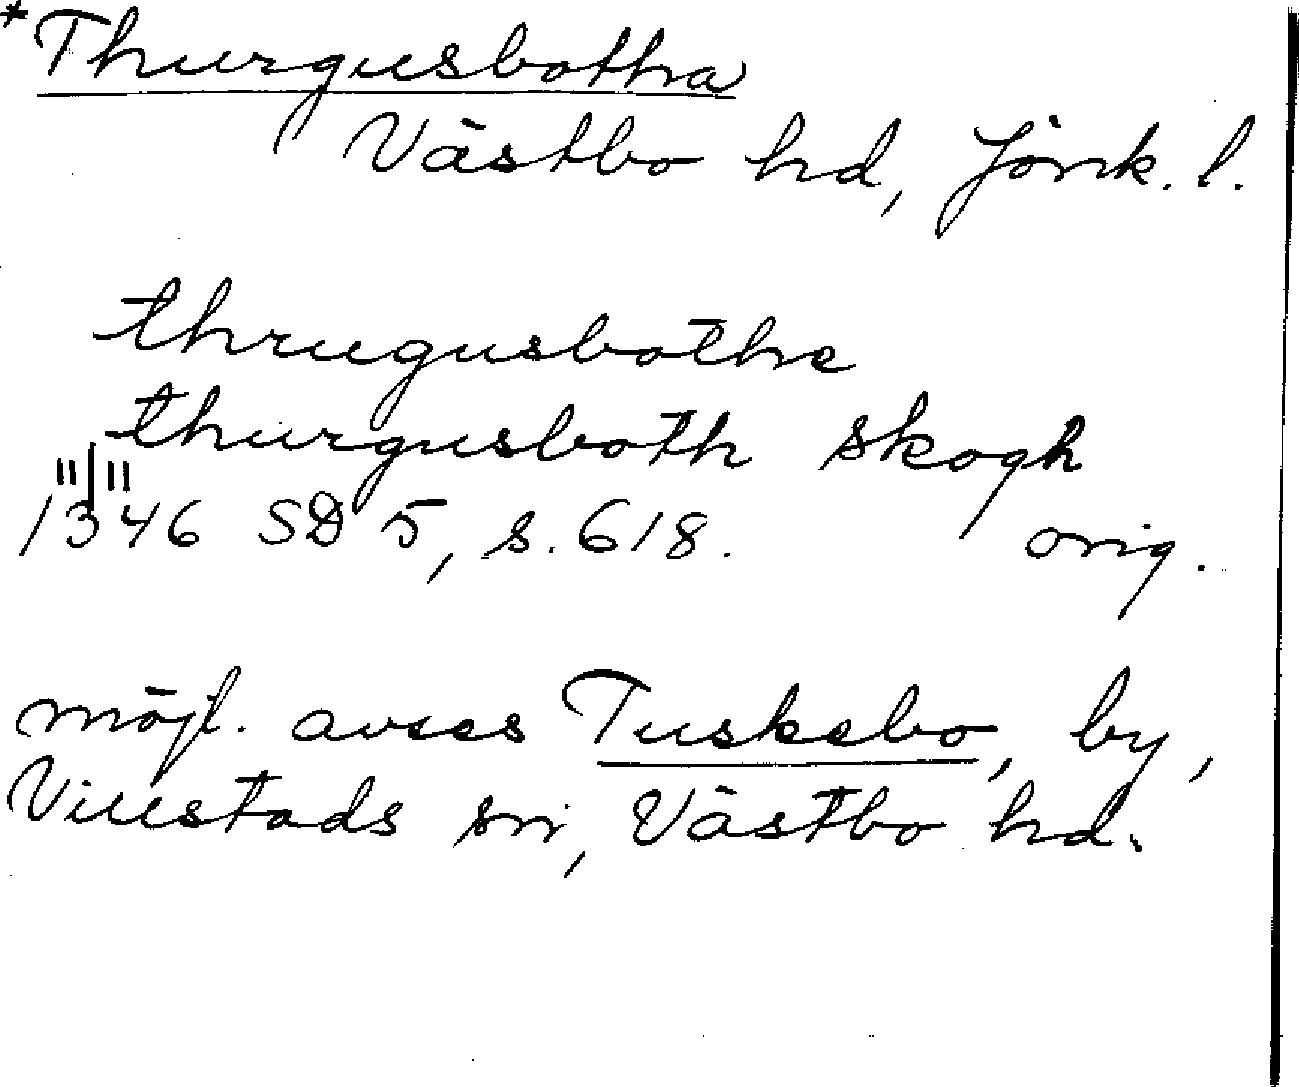 *Thurgusbotha
Västbo hd, Jönk. l.
thrugusbothe
thurgusboth skogh
1346 SD 5, s. 618. orig.
möjl. avses Tuskebo, by,
Villstads sn, Västbo hd.